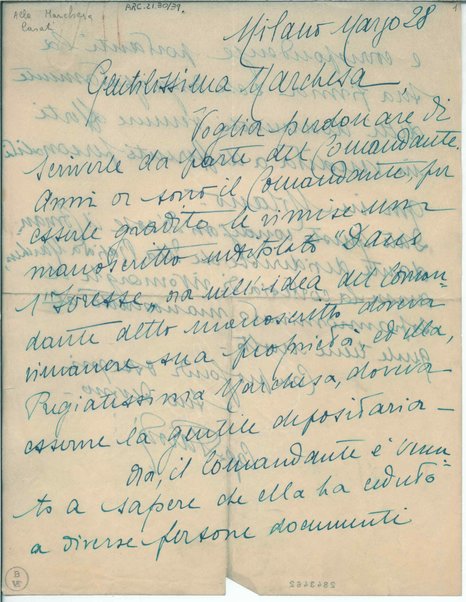 Alla Marchesa
Casati
ARC.21.30/31.
1
Milano Marzo 28
Gentilissima Marchesa
Voglia perdonare di
scriverle da parte del Comandante.
Anni or sono il Comandante per
esserle gradito le rimise un
manoscritto intitolato "Dans
l'Ivresse, ora nell'idea del Coman-
dante detto manoscritto doveva
rimanere sua proprietà, ed ella,
Pregiatissima Marchesa, doveva
esserne la gentile depositaria —
Ora, il Comandante è venu
to a sapere che ella ha ceduto
a diverse persone documenti
2843462